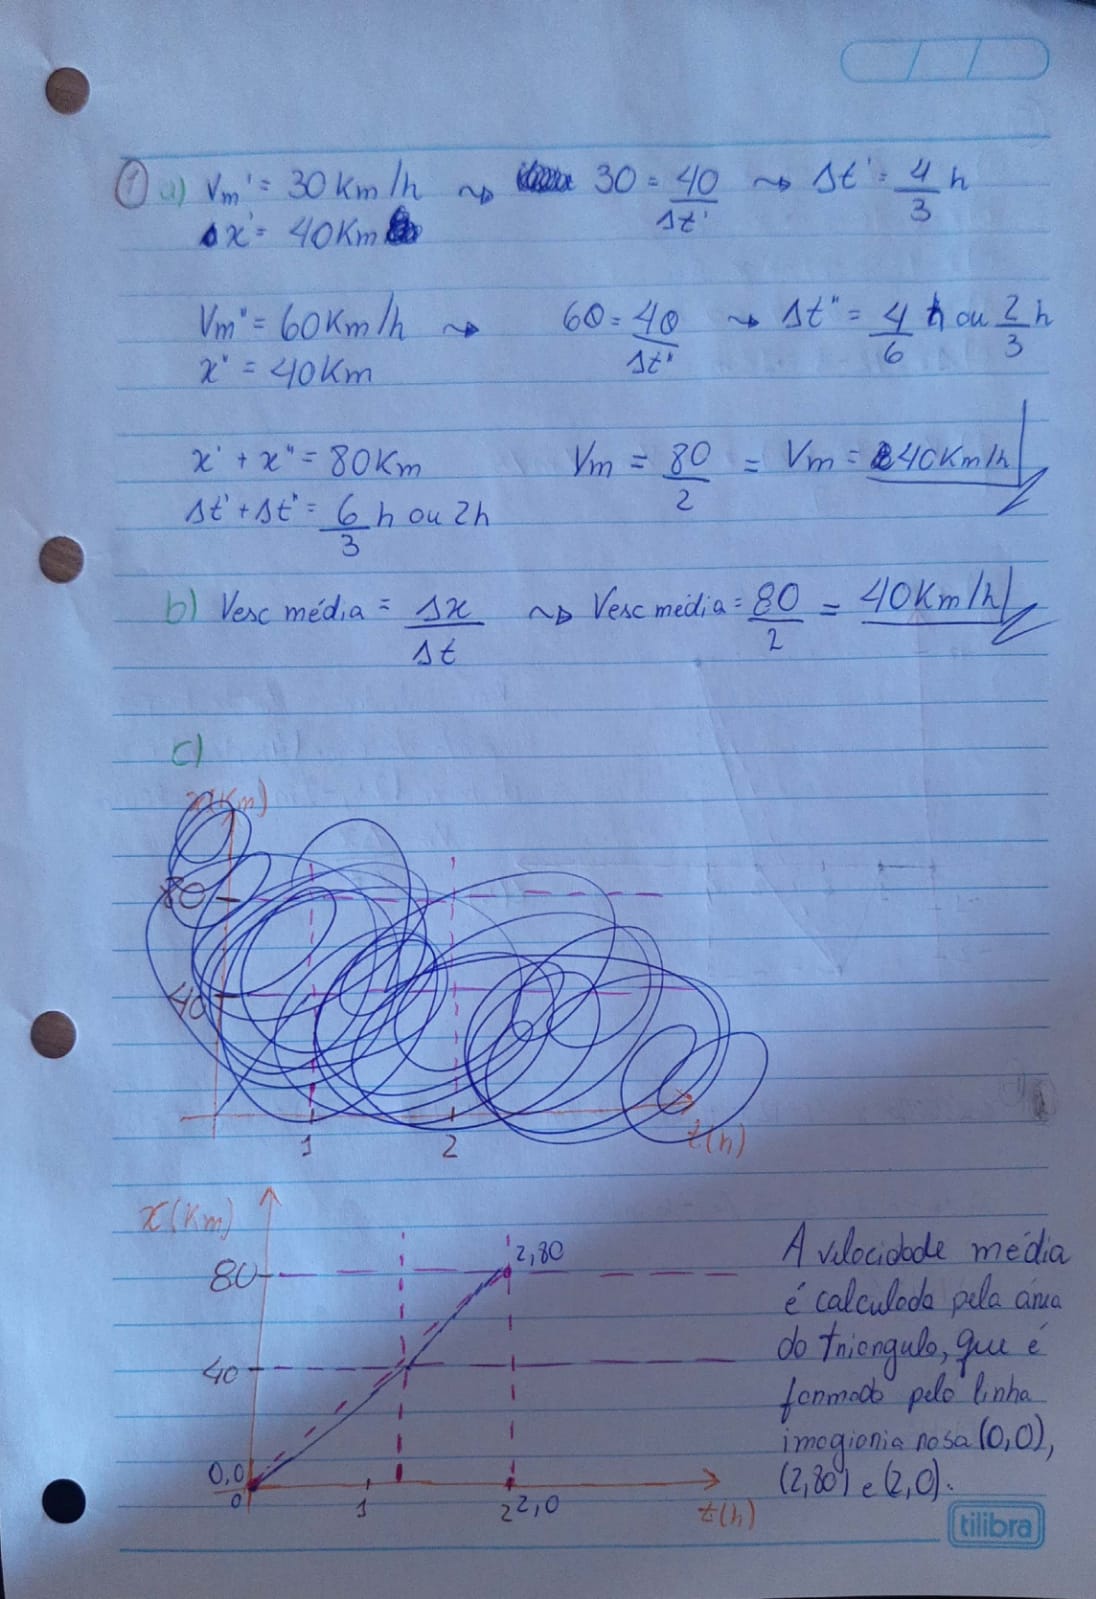 1 a) Vm' = 30 Km/h ⇝ 30 = 40/Δt' ⇝ Δt' = 4/3 h
Δx' = 40Km
Vm" = 60Km/h ⇝ 60 = 40/Δt" ⇝ Δt" = 4/6 h ou 2/3 h
x" = 40Km
x' + x" = 80Km Vm = 80/2 = Vm = 40Km/h
Δt' + Δt" = 6/3 h ou 2h
b) Vesc média = Δx/Δt ⇝ Vesc média = 80/2 = 40Km/h
c)
x(Km)
80
40
1 2 t(h)
x(Km)
80
2,80
40
0,0
0 1 2 2,0 t(h)
A velocidade média
é calculada pela área
do triangulo, que é
formado pelo linha
imogionia rosa (0,0),
(2,80) e (2,0).
tilibra